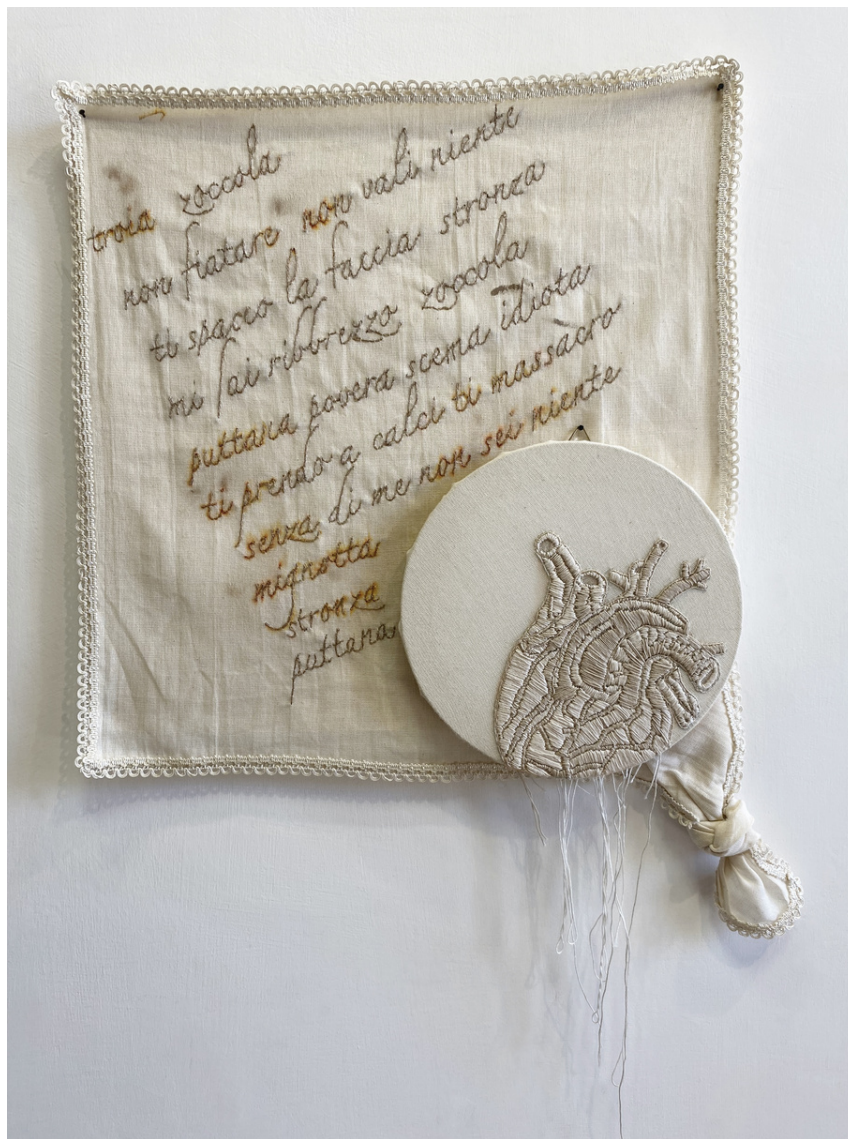 troia zoccola
non fiatare non vali niente
ti spacco la faccia stronza
mi fai ribbrezzo zoccola
puttana povera scema idiota
ti prendo a calci ti massacro
senza di me non sei niente
mignotta
stronza
puttana